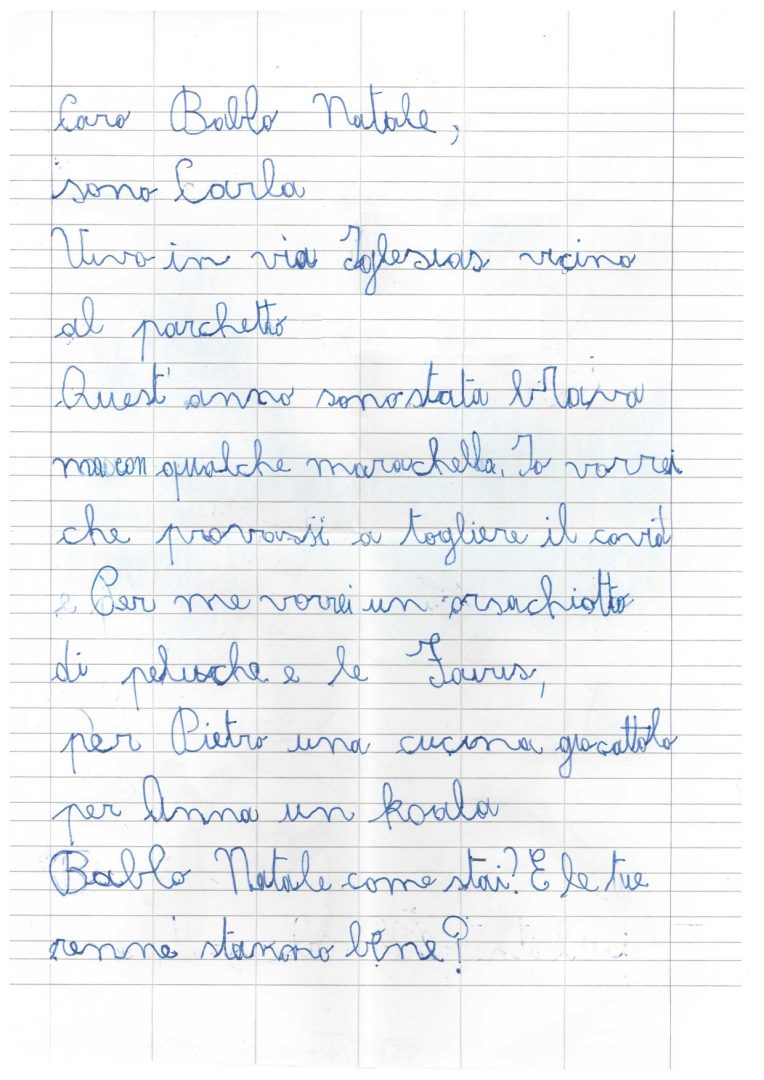 Caro Babbo Natale,
sono Carla
Vivo in via Iglesias vicino
al parchetto
Quest'anno sono stata brava
ma con qualche marachella. Io vorrei
che provassi a togliere il covid
e Per me vorrei un orsachiotto
di peluche e le
per Pietro una cucina giocattolo
per Anna un koala
Babbo Natale come stai? E le tue
renne stanno bene?